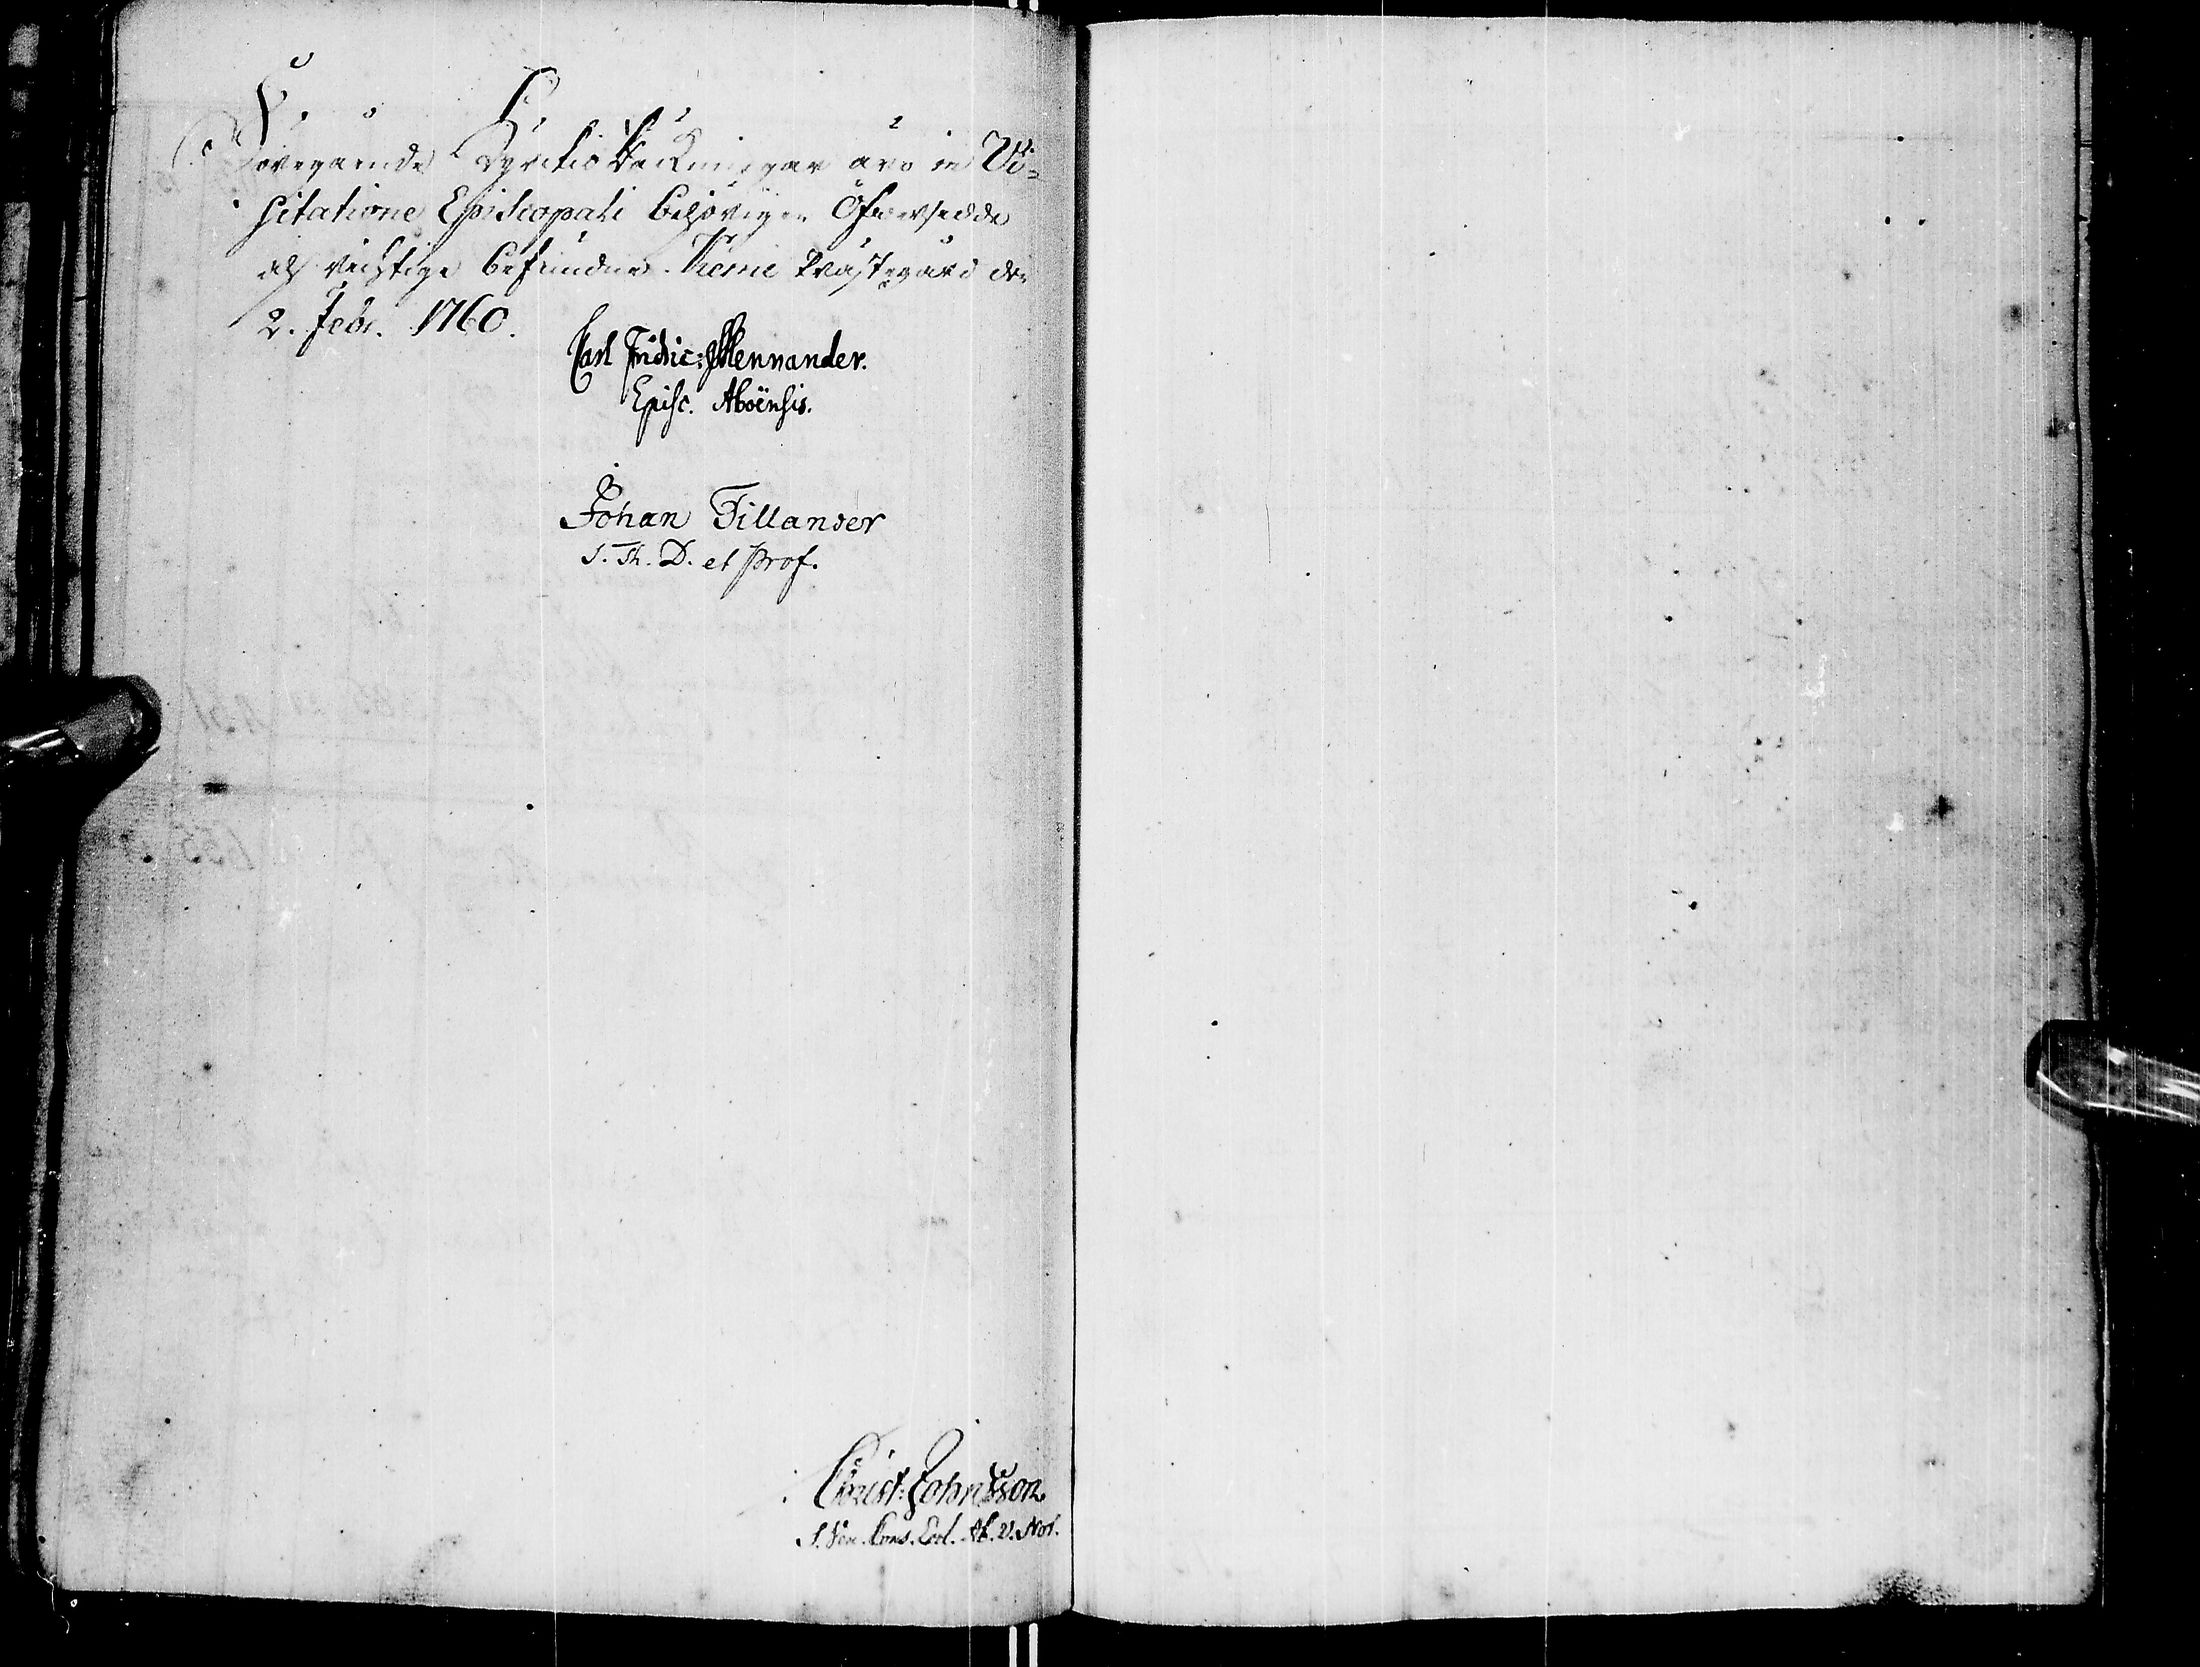 Föregående Kyrckio Räckningar äro in Vi=
sitatione Episcopali behörigen Öfwersedde
och richtige befundne. Kiemi Prästegård den
2. Febr. 1760.
Carl Fridric: Mennander.
Episc. Aboënsis.
Johan Tillander
S. Th. D. et Prof.
Christ: Johnsson
Cons. Eccl. Ab. V. Not.